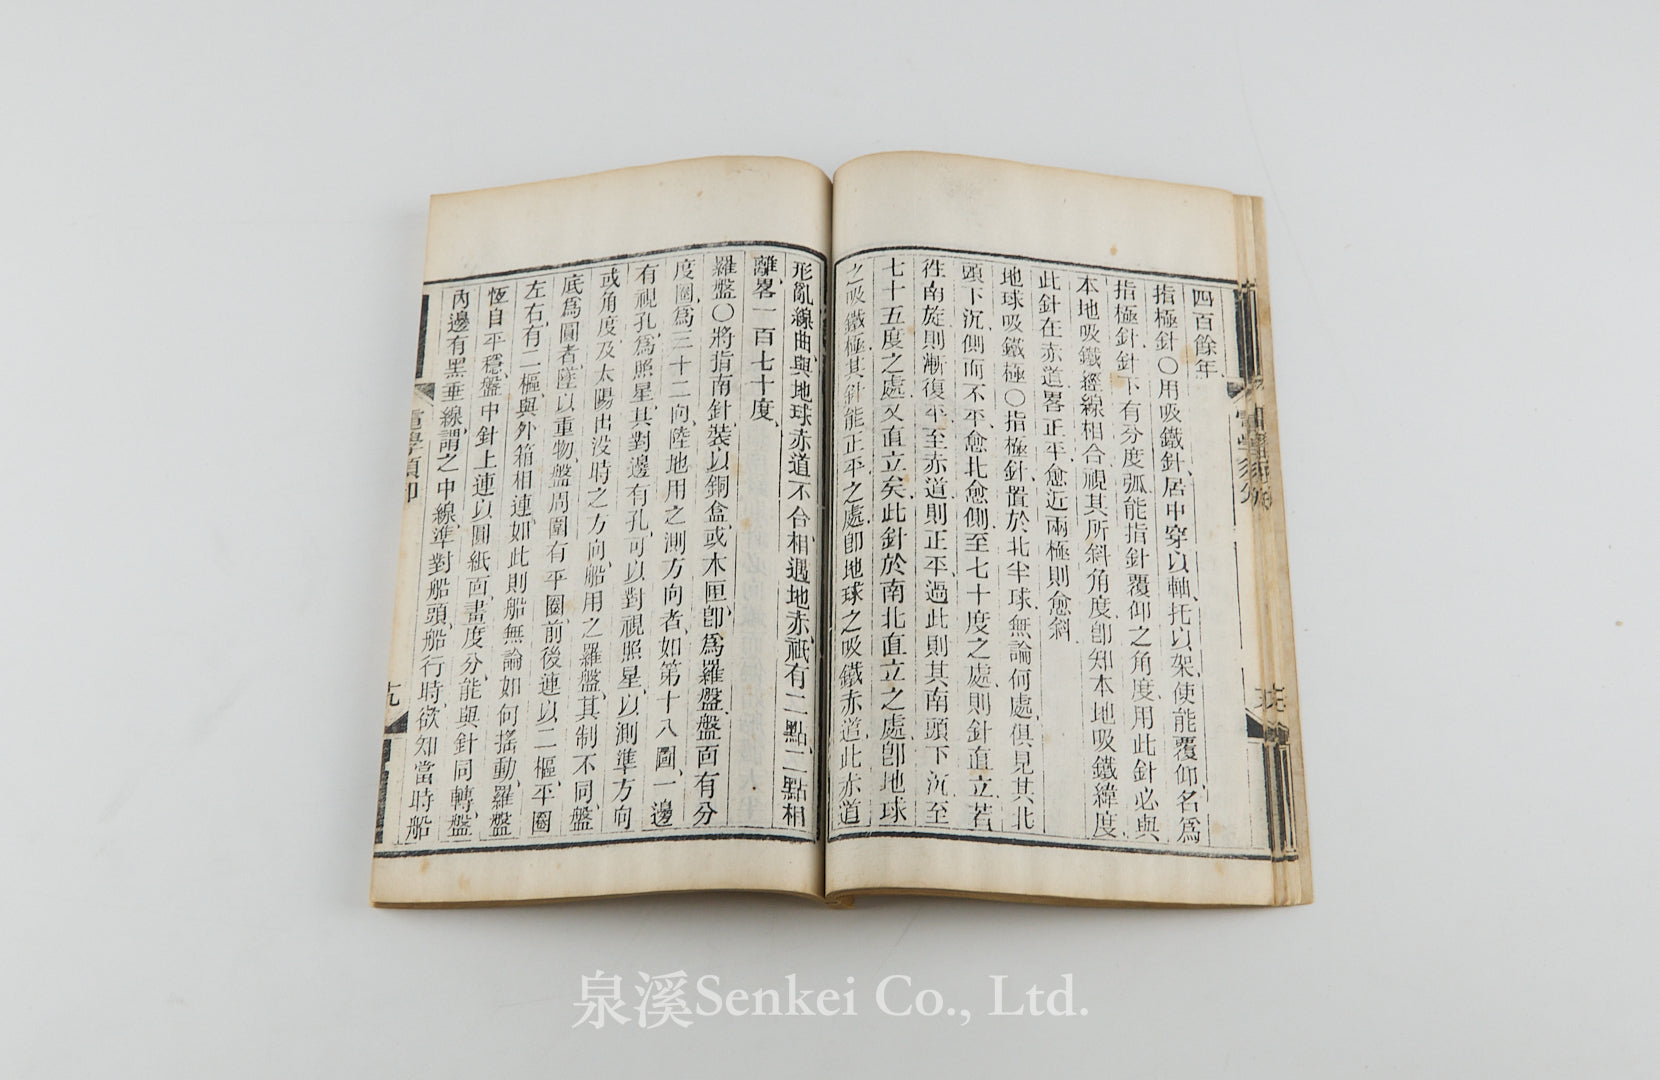 四百餘年
指極針〇用吸鐵針居中穿以軸托以架使能覆仰名爲
指極針針下有分度弧能指針覆仰之角度用此針必與
本地吸鐵經線相合視其所斜角度卽知本地吸鐵緯度
此針在赤道畧正平愈近兩極則愈斜
地球吸鐵極〇指極針置於北半球無論何處俱見其北
頭下沉側而不平愈北愈側至七十度之處則針直立若
徃南旋則漸復平至赤道則正平過此則其南頭下沉至
七十五度之處又直立矣此針於南北直立之處卽地球
之吸鐵極其針能正平之處卽地球之吸鐵赤道此赤道
形亂線曲與地球赤道不合相遇地赤祇有二點二點相
離畧一百七十度
羅盤〇將指南針裝以銅盒或木匣卽爲羅盤盤面有分
度圈爲三十二向陸地用之測方向者如第十八圖一邊
有視孔爲照星其對邊有孔可以對視照星以測準方向
或角度及太陽出沒時之方向船用之羅盤其制不同盤
底爲圓者墜以重物盤周圍有平圈前後連以二樞平圈
左右有二樞與外箱相連如此則船無論如何搖動羅盤
恆自平穩盤中針上連以圓紙面畫度分能與針同轉盤
內邊有黑垂線謂之中線準對船頭船行時欲知當時船
泉溪Senkei Co., Ltd.